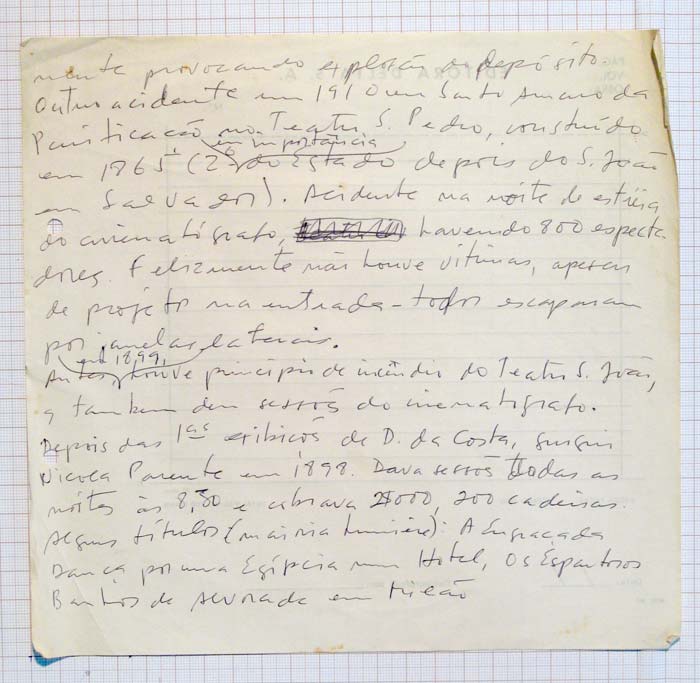 mente provocando explosão o depósito.
Outro acidente em 1910 em Santo Amaro da
Purificação no Teatro S. Pedro, construído
em importância
em 1865 (2º do Estado depois do S. João
em Salvador). Acidente na noite de estréia
do cinematógrafo, havendo 800 especta
dores. Felizmente não houve vítimas, apesar
de projetor na entrada - todos escaparam
por janelas laterais.
em 1899,
Antes, houve princípio de incêndio do Teatro S. João,
q também deu sessões do cinematógrafo.
Depois das 1as exibições de D. da Costa, surgiu
Nicola Parente em 1898. Dava sessões todas as
noites às 8,30 e cobrava 2$000, 200 cadeiras.
Alguns títulos (maioria Lumière): A Engraçada
Dança por uma Egípcia num Hotel, Os Espantosos
Banhos de Alvorada em Milão